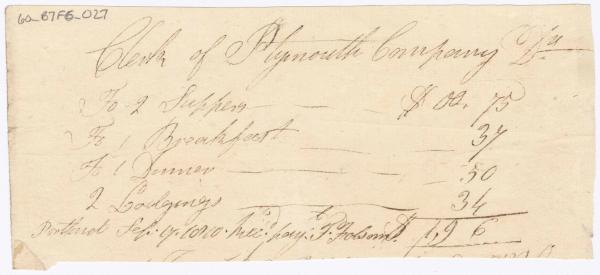 60_B7F6_027
Clerk of Plymouth Company Dr
To 2 Suppers $ 00. 75
To 1 Breakfast 37
To 1 Dinner 50
2 Lodgings 34
Portland Sep. 17. 1810. Rec.d pay.t P. Folsom. $ 1.96